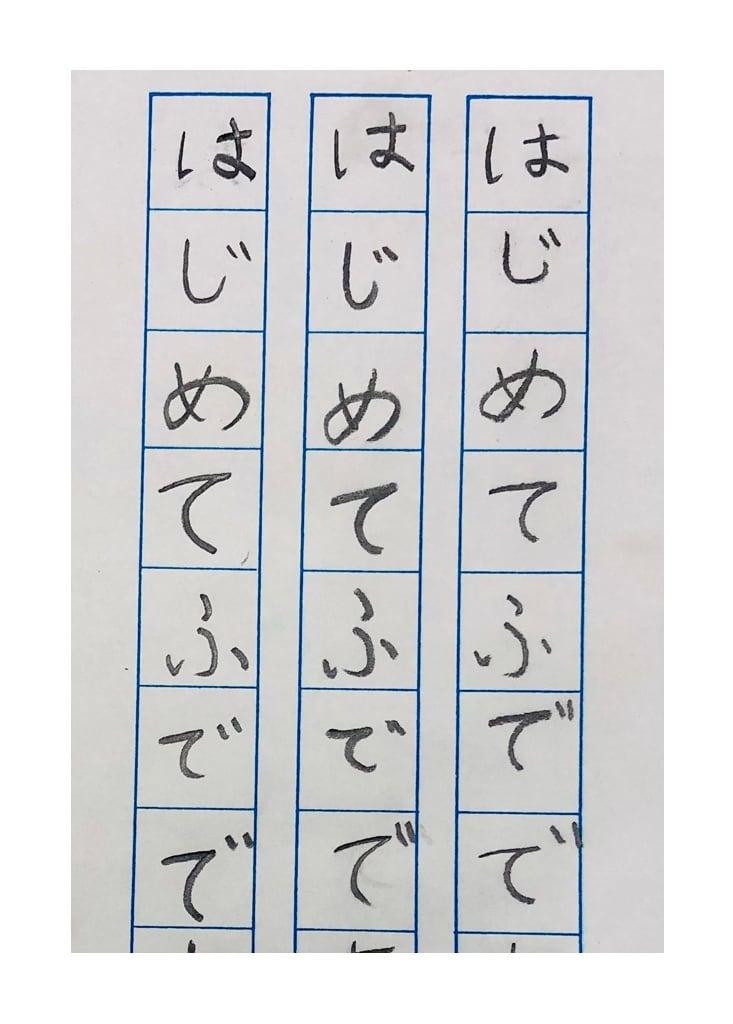 はじめてふでで
はじめてふでで
はじめてふでで